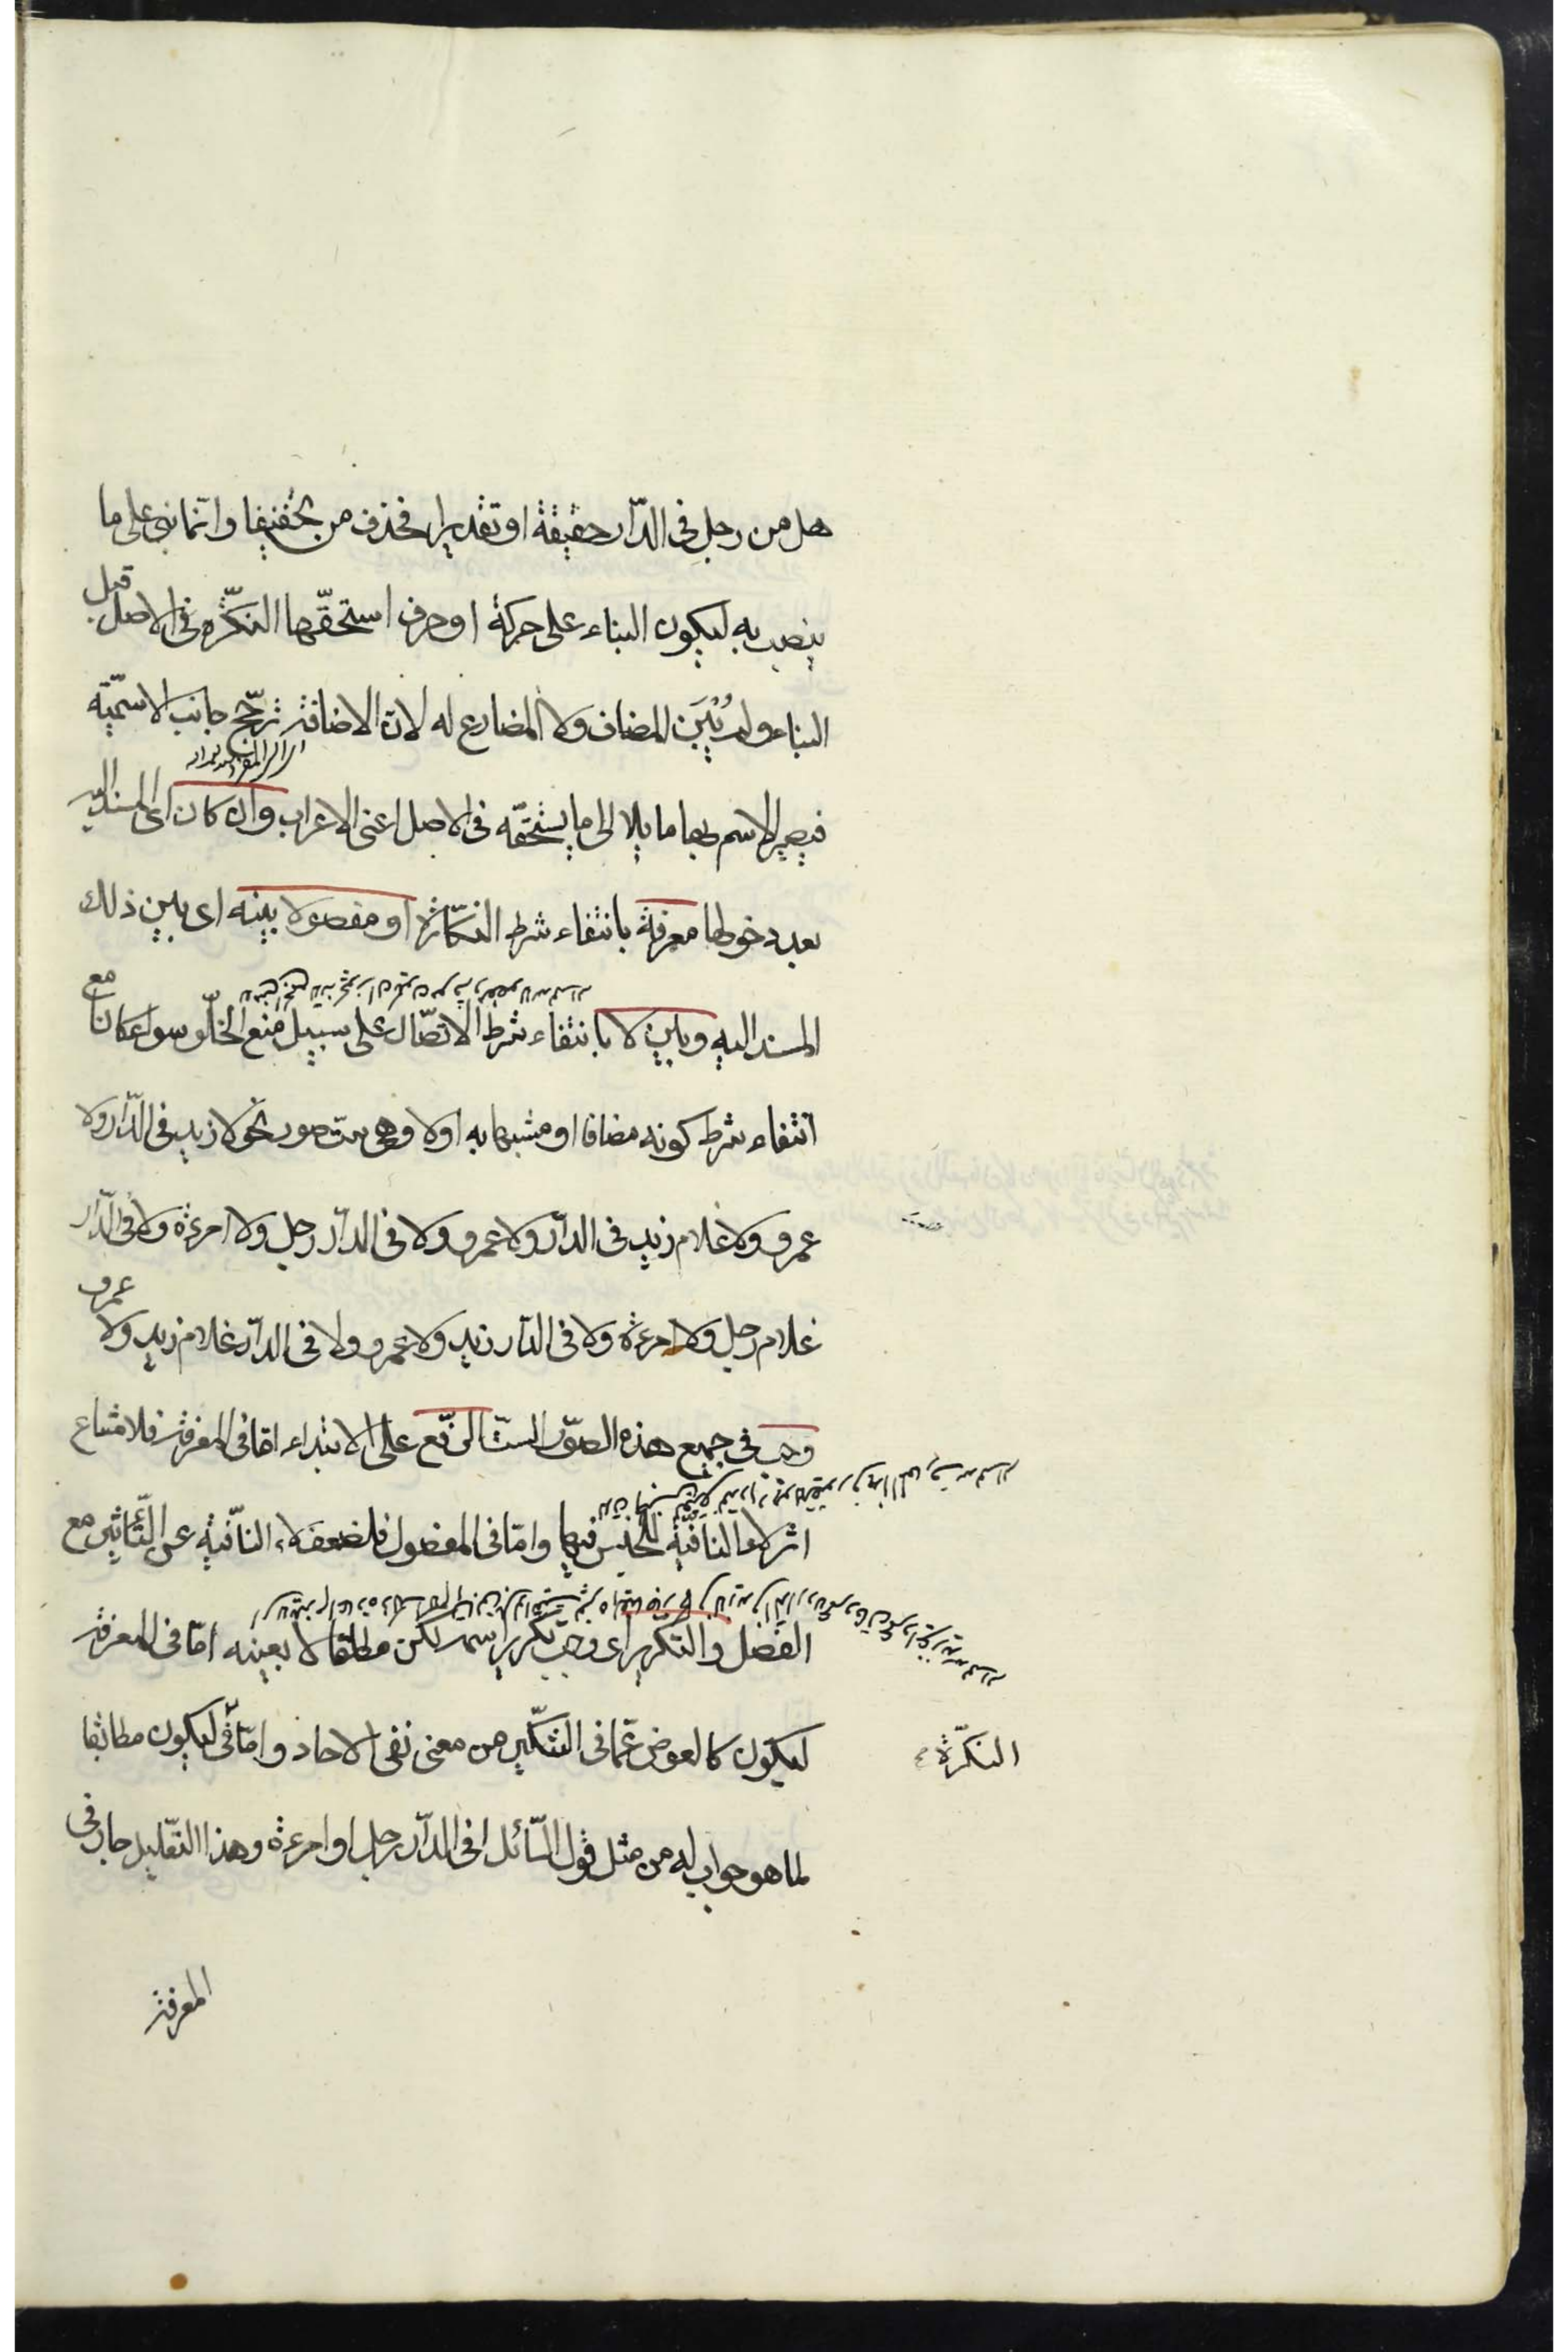 هل من رجل فى الدّار حقيقة او تقديرا فحذف من تخفيفا وانّما بنى على ما
ينصب به ليكون البناء على حركة او حرف استحقّها النكرة فى الاصل قبل
البناء ولم يُبْنَ المضاف ولا المضارع له لانّ الاضافة ترجّح جانب الاسميّة
فيصير الاسم بها مايلا الى ما يستحقّه فى الاصل اعنى الاعراب وان كان اى المسند اليه
بعد دخولها معرفة بانتفاء شرط النكارة او مفصولا بينه اى بين ذلك
المسند اليه وبين لا بانتفاء شرط الاتّصال على سبيل منع الخلّو سواء كانا مع
انتفاء شرط كونه مضافا او مشبها به او لا وهى ستّ صور نحو لا زيد فى الدّار ولا
عمرو ولا غلام زيد فى الدّار ولا عمرو ولا فى الدّار رجل ولا امرءة ولا فى الدّار
غلام رجل ولا امرءة ولا فى الدّار زيد ولا عمرو ولا فى الدّار غلام زيد ولا عمرو
وجب فى جميع هذه الصّور الستّ الرّفع على الابتداء امّا فى المعرفة فلامتناع
اثر لا النافية للجنس فيها وامّا فى المفصول فلضعف لاء النّافية عن التّأثير مع
الفصل والتّكرير اى وجب تكرير اسمه لكن مطلقا لا بعينه امّا فى المعرفة
ليكون كالعوض عمّا فى التنكير من معنى نفى الاحاد وامّا فى ليكون مطابقا
النكرة
لما هو جواب له من مثل قول السّائل افى الدّار رجل او امرءة وهذا التّعليل جار فى
المعرفة